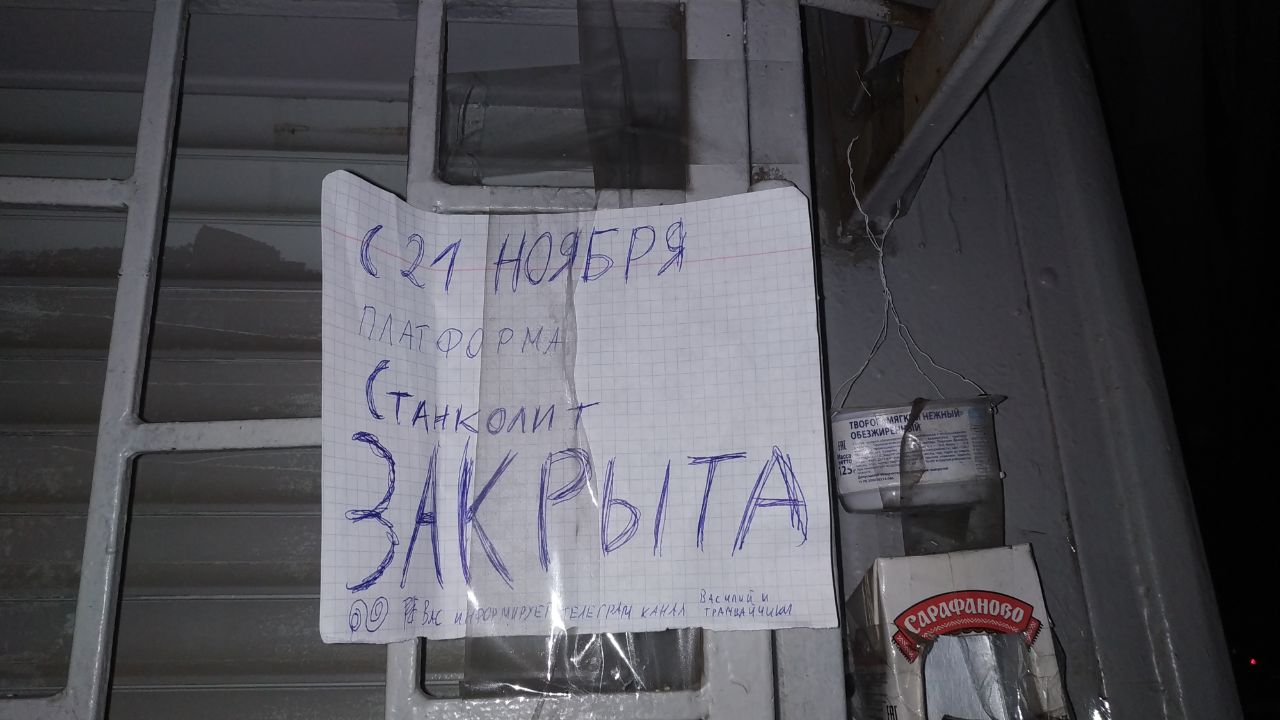 С 21 НОЯБРЯ
ПЛАТФОРМА
СТАНКОЛИТ
ЗАКРЫТА
ВАС ИНФОРМИРУЕТ ТЕЛЕГРАМ КАНАЛ ВАСИЛИЙ И
ТРАМВАЙЧИКИ
ТВОРОГ «МЯГКИЙ НЕЖНЫЙ»
ОБЕЗЖИРЕННЫЙ
Масса
нетто
125
САРАФАНОВО